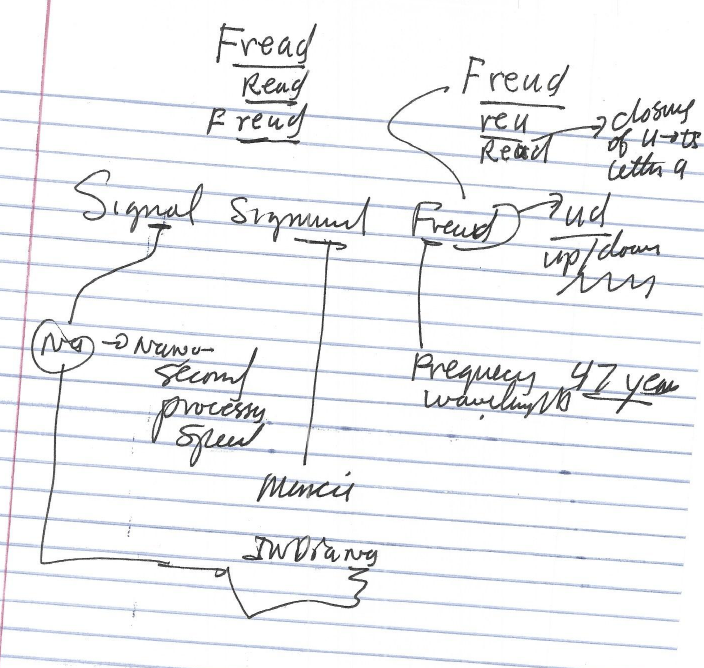 Fread
Read
Freud
Freud
reu
Read
closing
of u → to
letter a
Signal Sigmund Freud
ud
up/down
Na → Nano
Second
processy
Speed
Frequency 47 year
wavelengths
Muncie
INDIana